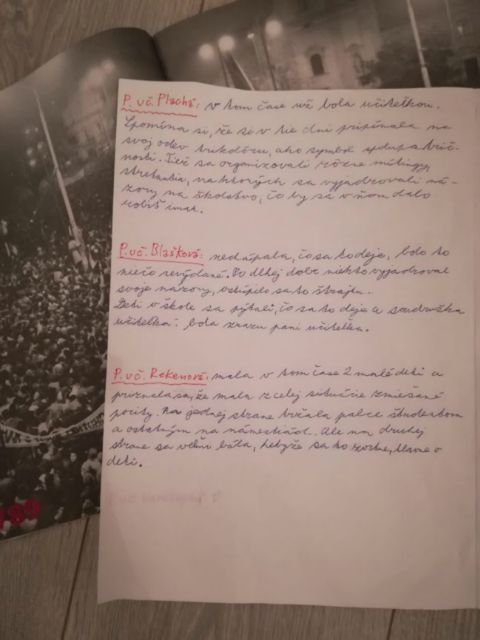 P. uč. Plachá: v tom čase už bola učiteľkou.
Spomína si, že si v tie dni pripínala na
svoj odev trikolóru, ako symbol spolupatrič-
nosti. Tiež sa organizovali rôzne mítingy,
stretnutia, na ktorých sa vyjadrovali ná-
zory na školstvo, čo by sa v ňom dalo
robiť inak.
P. uč. Blašková: nechápala, čo sa to deje, bolo to
niečo nevýdané. Po dlhej dobe niekto vyjadroval
svoje názory, vstúpilo sa do štrajku.
Deti v škole sa pýtali, čo sa to deje a súdružka
učiteľka - bola zrazu pani učiteľka.
P. uč. Rekenová: mala v tom čase 2 malé deti a
priznala sa, že mala z celej situácie zmiešané
pocity. Na jednej strane držala palce študentom
a ostatným na námestiach. Ale na druhej
strane sa veľmi bála, keďže sa to zvrtne, hlavne o
deti.
P. uč.
'89